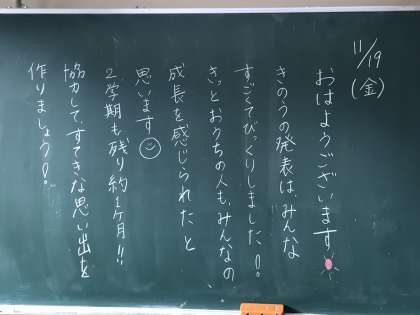 11/19
(金)
おはようございます
きのうの発表は、みんな
すごくてびっくりしました!
きっとおうちの人も、みんなの
成長を感じられたと
思います
2学期も残り約1ケ月!!
協力してすてきな思い出を
作りましょう!